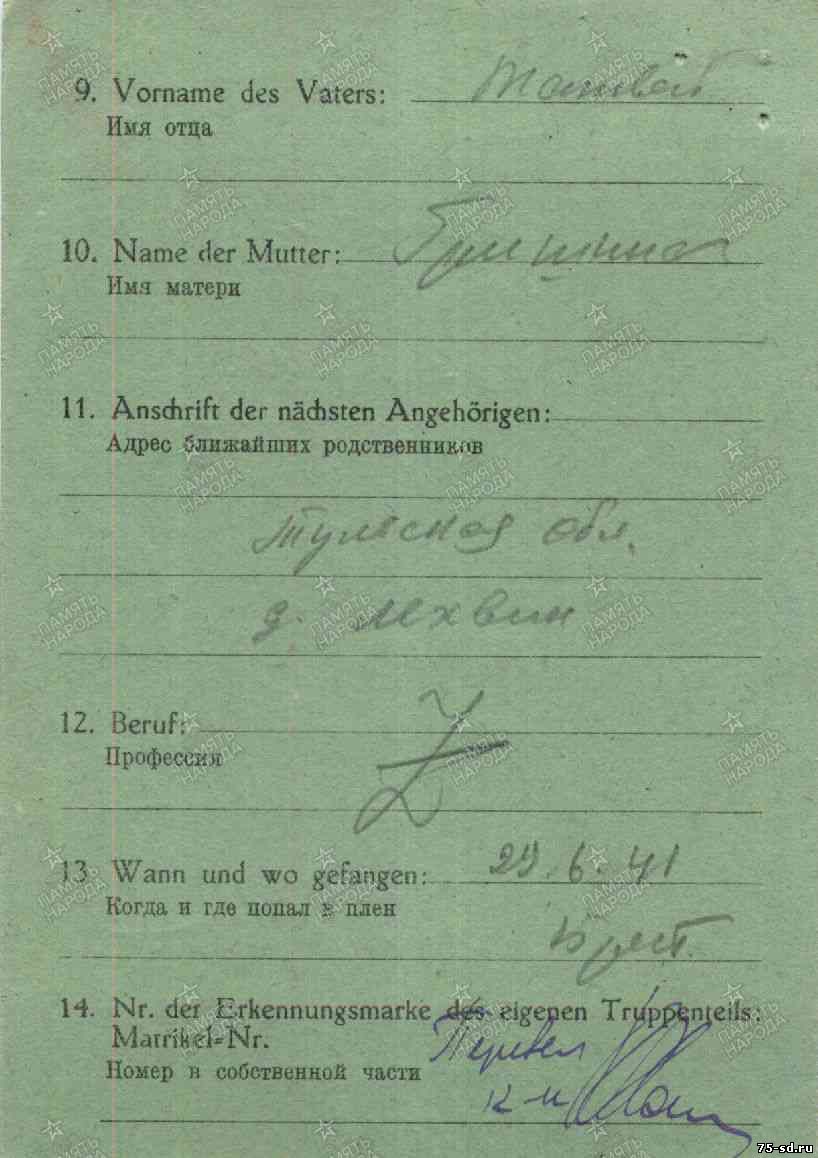 9. Vorname des Vaters: Матвей
Имя отца
10. Name der Mutter: Гришина
Имя матери
11. Anschrift der nächsten Angehörigen:
Адрес ближайших родственников
Тульская обл.
д. Лехвин
12. Beruf:
Профессия
13. Wann und wo gefangen: 29.6.41
Когда и где попал в плен
Брест.
14. Nr. der Erkennungsmarke des eigenen Truppenteils:
Matrikel=Nr.
Перевел
Номер в собственной части
ПАМЯТЬ НАРОДА
75-sd.ru